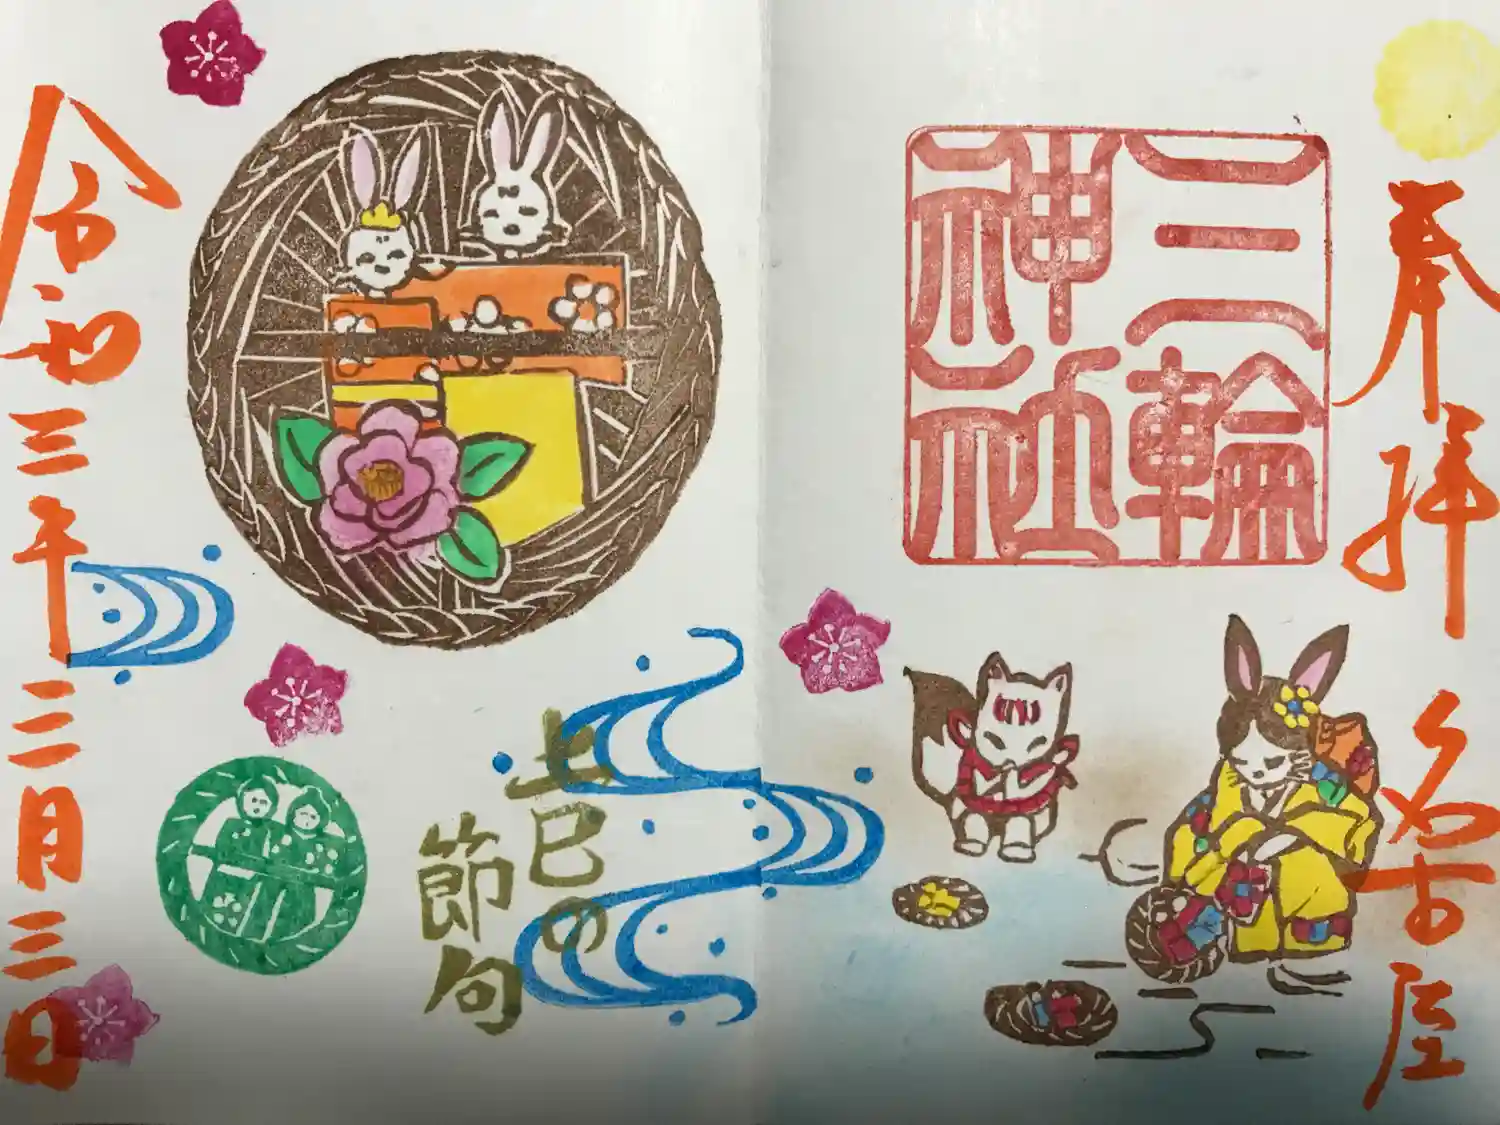 奉拝 名古屋
三輪
神社
上巳の
節句
令和三年三月三日